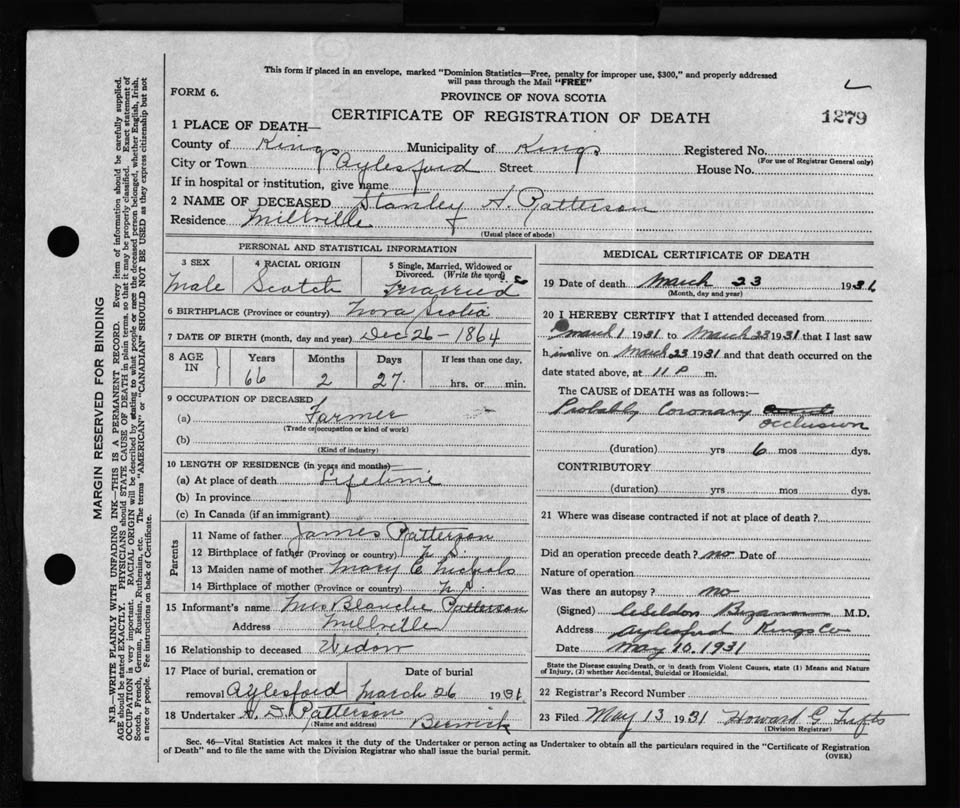 This form if placed in an envelope, marked "Dominion Statistics—Free, penalty for improper use, $300," and properly addressed
will pass through the Mail "FREE"
FORM 6.
PROVINCE OF NOVA SCOTIA
CERTIFICATE OF REGISTRATION OF DEATH
1279
1 PLACE OF DEATH—
County of Kings Municipality of Kings Registered No.
(For use of Registrar General only)
City or Town Aylesford Street House No.
If in hospital or institution, give name
2 NAME OF DECEASED Stanley A. Patterson
Residence Millville
(Usual place of abode)
PERSONAL AND STATISTICAL INFORMATION
3 SEX 4 RACIAL ORIGIN 5 Single, Married, Widowed or
Divorced. (Write the word)
Male Scotch Married
6 BIRTHPLACE (Province or country) Nova Scotia
7 DATE OF BIRTH (month, day and year) Dec 26 - 1864
8 AGE IN Years Months Days If less than one day,
66 2 27 hrs. or min.
9 OCCUPATION OF DECEASED
(a) Farmer
(Trade or occupation or kind of work)
(b)
(Kind of industry)
10 LENGTH OF RESIDENCE (in years and months)
(a) At place of death Lifetime
(b) In province
(c) In Canada (if an immigrant)
Parents
11 Name of father James Patterson
12 Birthplace of father (Province or country) N. S.
13 Maiden name of mother Mary E Nichols
14 Birthplace of mother (Province or country) N S
15 Informant's name Mrs Blanche Patterson
Address Millville
16 Relationship to deceased Widow
17 Place of burial, cremation or Date of burial
removal Aylesford March 26 1931
18 Undertaker Patterson Berwick
(Name and address)
MEDICAL CERTIFICATE OF DEATH
19 Date of death March 23 1931
(Month, day and year)
20 I HEREBY CERTIFY that I attended deceased from
March 1 1931 to March 23 1931 that I last saw
him alive on March 23 1931 and that death occurred on the
date stated above, at 11 P m.
The CAUSE of DEATH was as follows:—
Probably Coronary
occlusion
(duration) yrs 6 mos dys.
CONTRIBUTORY
(duration) yrs mos dys.
21 Where was disease contracted if not at place of death?
Did an operation precede death? no Date of
Nature of operation
Was there an autopsy? no
(Signed) M.D.
Address Aylesford Kings Co
Date May 10. 1931
State the Disease causing Death, or in death from Violent Causes, state (1) Means and Nature
of Injury, (2) whether Accidental, Suicidal or Homicidal.
22 Registrar's Record Number
23 Filed May 13 1931 Howard G Tufts
(Division Registrar)
Sec. 46—Vital Statistics Act makes it the duty of the Undertaker or person acting as Undertaker to obtain all the particulars required in the "Certificate of Registration
of Death" and to file the same with the Division Registrar who shall issue the burial permit.
(OVER)
MARGIN RESERVED FOR BINDING
N.B.—WRITE PLAINLY WITH UNFADING INK—THIS IS A PERMANENT RECORD. Every item of information should be carefully supplied.
AGE should be stated EXACTLY. PHYSICIANS should STATE CAUSE OF DEATH in plain terms, so that it may be properly classified. Exact statement of
OCCUPATION is very important. RACIAL ORIGIN will be described by stating to what people or race the deceased person belonged, whether English, Irish,
Scotch, French, German, Russian, Ruthenian, etc. The terms "AMERICAN" or "CANADIAN" SHOULD NOT BE USED as they express citizenship but not
a race or people. Fee instructions on back of Certificate.